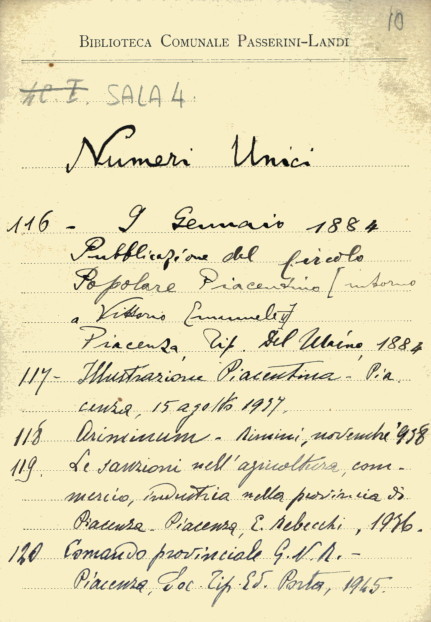 10
BIBLIOTECA COMUNALE PASSERINI-LANDI
SALA 4
Numeri Unici
116 - 9 Gennaio 1884
Pubblicazione del Circolo
Popolare Piacentino [intorno
a Vittorio Emanuele II]
Piacenza, Tip. Del Maino, 1884
117 - Illustrazione Piacentina - Pia
cenza, 15 agosto 1937.
118 Ariminum - Rimini, novembre 938
119. Le sanzioni nell'agricoltura, com-
mercio, industria nella provincia di
Piacenza - Piacenza, E. Rebecchi, 1936.
120 Comando provinciale G.N.R. -
Piacenza, Soc. Tip. Ed. Porta, 1945.